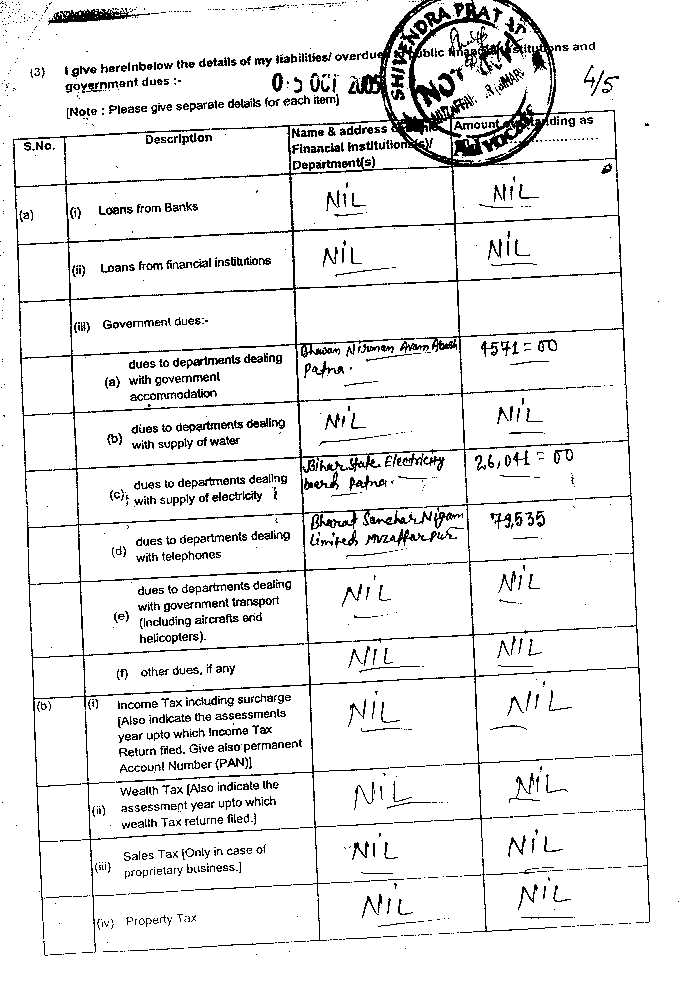 (3) I give hereinbelow the details of my liabilities/ overdues public financial institutions and
government dues :-
0 5 OCT 2005
4/5
[Note : Please give separate details for each item]
SHIVENDRA PRATAP
NOTARY
ADVOCATE
S.No.
Description
Name & address
Financial Institution(s)/
Department(s)
Amount outstanding as
(a) (i) Loans from Banks NiL NiL
(ii) Loans from financial institutions NiL NiL
(iii) Government dues:-
(a) dues to departments dealing
with government
accommodation
Bhawan Nirman Patna. 4571=00
(b) dues to departments dealing
with supply of water
NiL NiL
(c) dues to departments dealing
with supply of electricity
Bihar State Electricity
board Patna. 26,041=00
(d) dues to departments dealing
with telephones
Bharat Sanchar Nigam
Limited Muzaffarpur 79,535
(e) dues to departments dealing
with government transport
(including aircrafts and
helicopters).
NiL NiL
(f) other dues, if any NiL NiL
(b) (i) Income Tax including surcharge
[Also indicate the assessments
year upto which Income Tax
Return filed. Give also permanent
Account Number (PAN)]
NiL NiL
(ii) Wealth Tax [Also indicate the
assessment year upto which
wealth Tax returne filed.]
NiL NiL
(iii) Sales Tax [Only in case of
proprietary business.]
NiL NiL
(iv) Property Tax NiL NiL